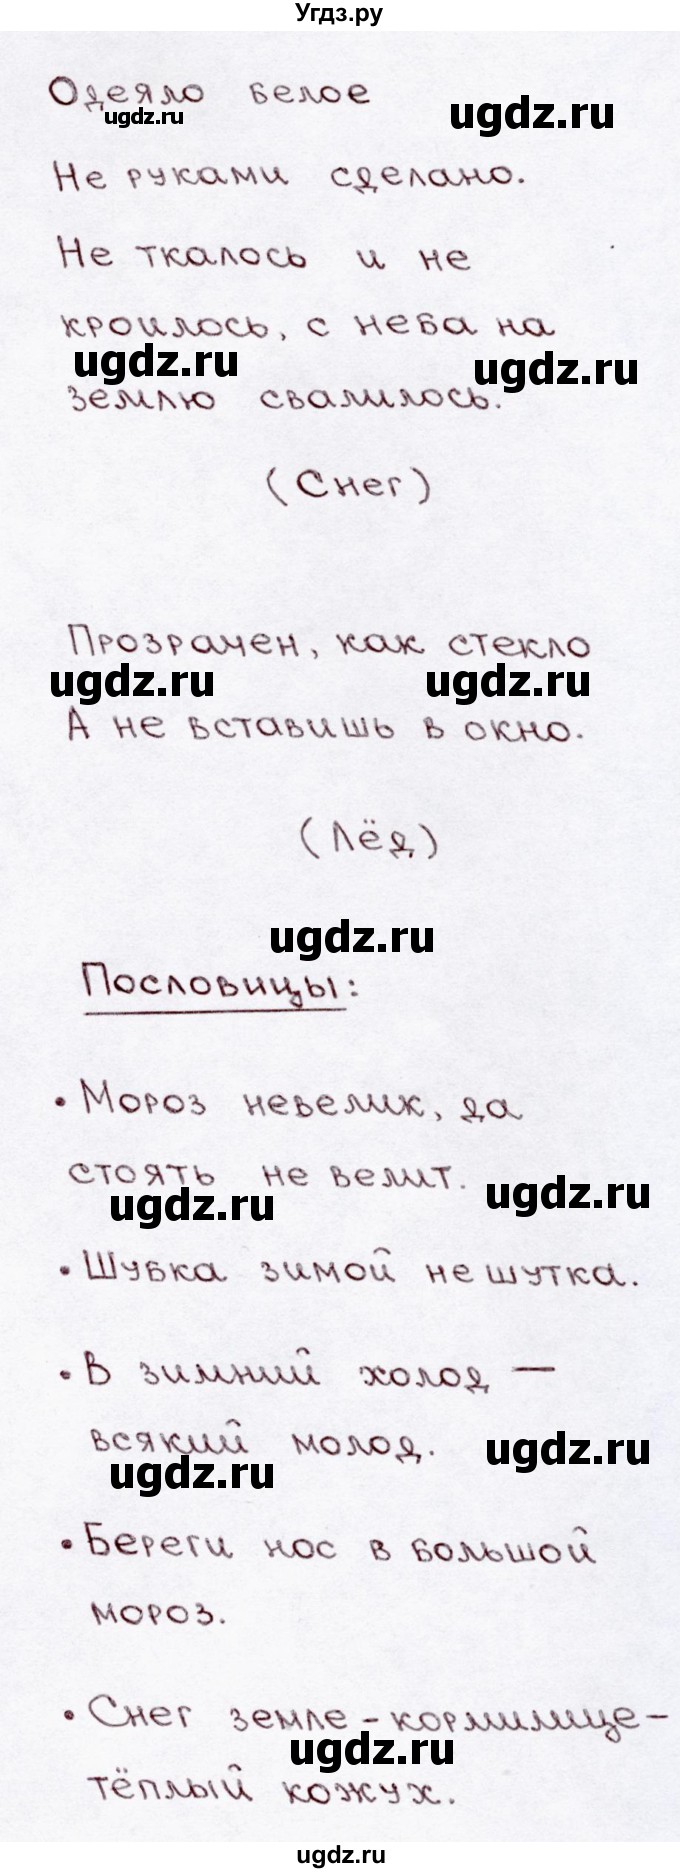 Угдз.ру
Одеяло белое
ugdz.ru
ugdz.ru
Не руками сделано.
Не ткалось и не
кроилось, с неба на
ugdz.ru
ugdz.ru
землю свалилось.
(Снег)
Прозрачен, как стекло
ugdz.ru
ugdz.ru
А не вставишь в окно.
(Лёд)
ugdz.ru
Пословицы:
• Мороз невелик, да
стоять не велит.
ugdz.ru
ugdz.ru
• Шубка зимой не шутка.
• В зимний холод —
всякий молод.
ugdz.ru
ugdz.ru
• Береги нос в большой
мороз.
• Снег земле-кормилице-
ugdz.ru
тёплый кожух.
ugdz.ru